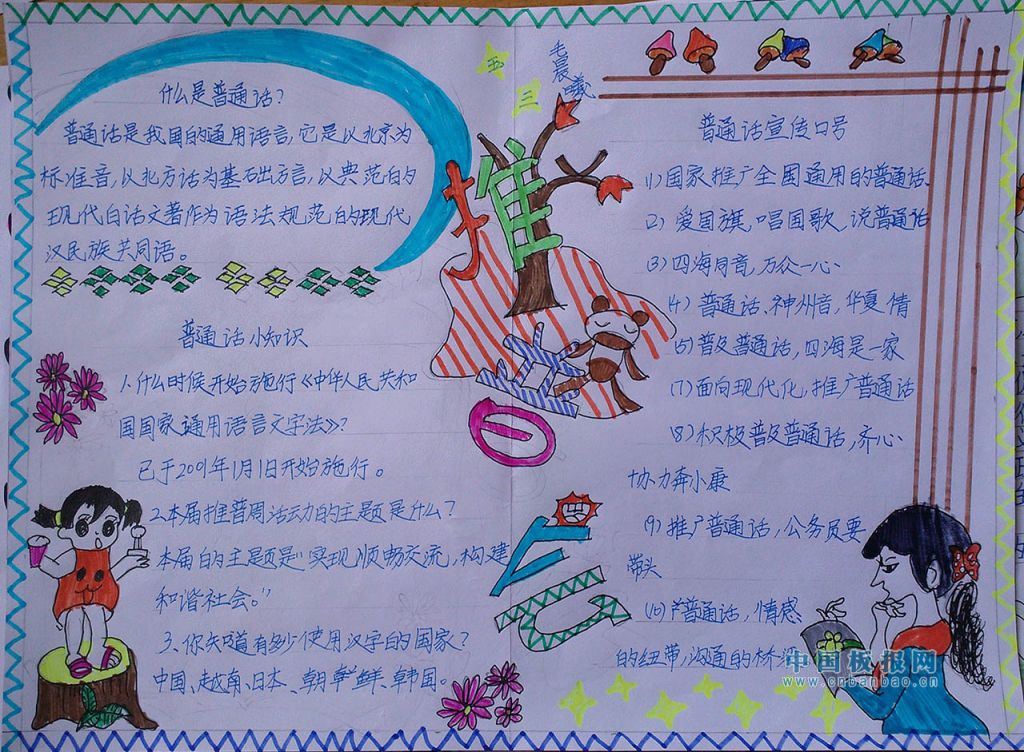 什么是普通话?
普通话是我国的通用语言,它是以北京为
标准音,以北方话为基础方言,以典范的
现代白话文著作为语法规范的现代
汉民族共同语。
普通话小知识
1.什么时候开始施行《中华人民共和
国国家通用语言文字法》?
已于2001年1月1日开始施行。
2.本届推普周活动的主题是什么?
本届的主题是"实现顺畅交流,构建
和谐社会。"
3、你知道有多少使用汉字的国家?
中国、越南、日本、朝鲜、韩国。
五
三
毛晨曦
推
普
普通话宣传口号
(1)国家推广全国通用的普通话、
(2)爱国旗,唱国歌,说普通话
(3)四海同音,万众一心、
(4)普通话、神州音,华夏情
(5)普及普通话,四海是一家
(7)面向现代化,推广普通话
(8)积极普及普通话,齐心、
协力奔小康
(9)推广普通话,公务员要
带头
(10)普通话,情感
的纽带,沟通的桥
中国板报网
www.cnbanbao.cn